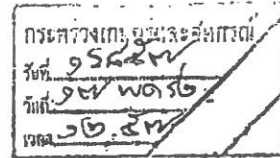 กระทรวงเกษตรและสหกรณ์
รับที่ ๑๕๘๕๗
วันที่ ๑๗
เวลา ๑๒.๕๗